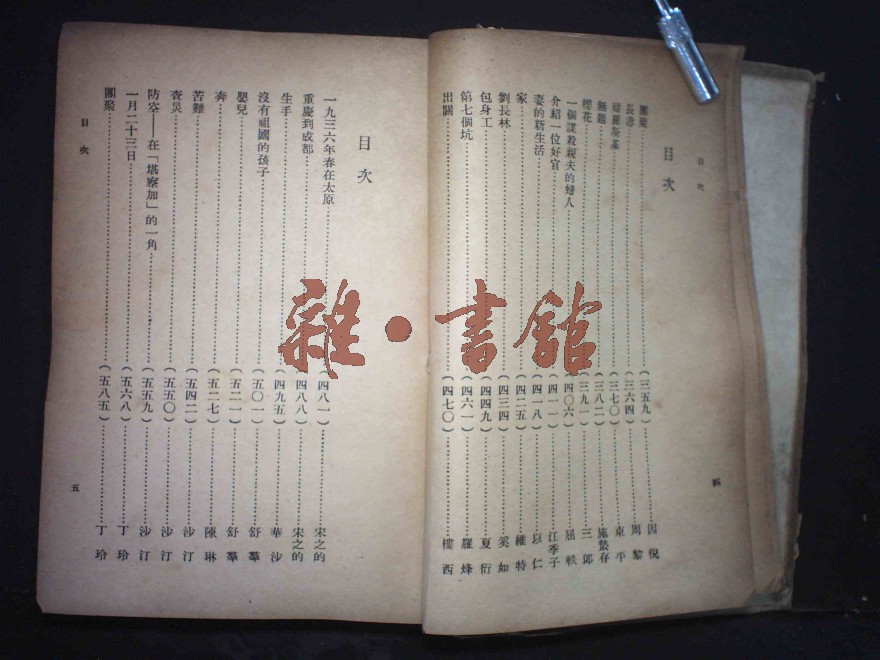 目次
團聚……(三五九)……因倪
長壽……(三六四)……周黎
……(三七〇)……東平
無題……(三八二)……施蟄存
櫻花……(三九一)……三郎
一個謀殺親夫的婦人……(四〇六)……屈軼
介紹一位好官……(四一一)……江季子
妻的新生活……(四一八)……以仁
家……(四二五)……維特
劉長林……(四三四)……奚如
包身工……(四四九)……夏衍
第七個坑……(四六一)……羅烽
出關……(四七〇)……樓西
目次
四
目次
一九三六年春在太原……(四八一)……宋之的
重慶到成都……(四八八)……宋之的
生手……(四九五)……華沙
沒有祖國的孩子……(五〇一)……舒羣
嬰兒……(五二一)……舒羣
奔……(五二七)……陳琳
苦難……(五四二)……沙汀
查災……(五五〇)……沙汀
防空——在「堪察加」的一角……(五五九)……沙汀
一月二十三日……(五六八)……丁玲
團聚……(五八五)……丁玲
目次
五
雜·書館